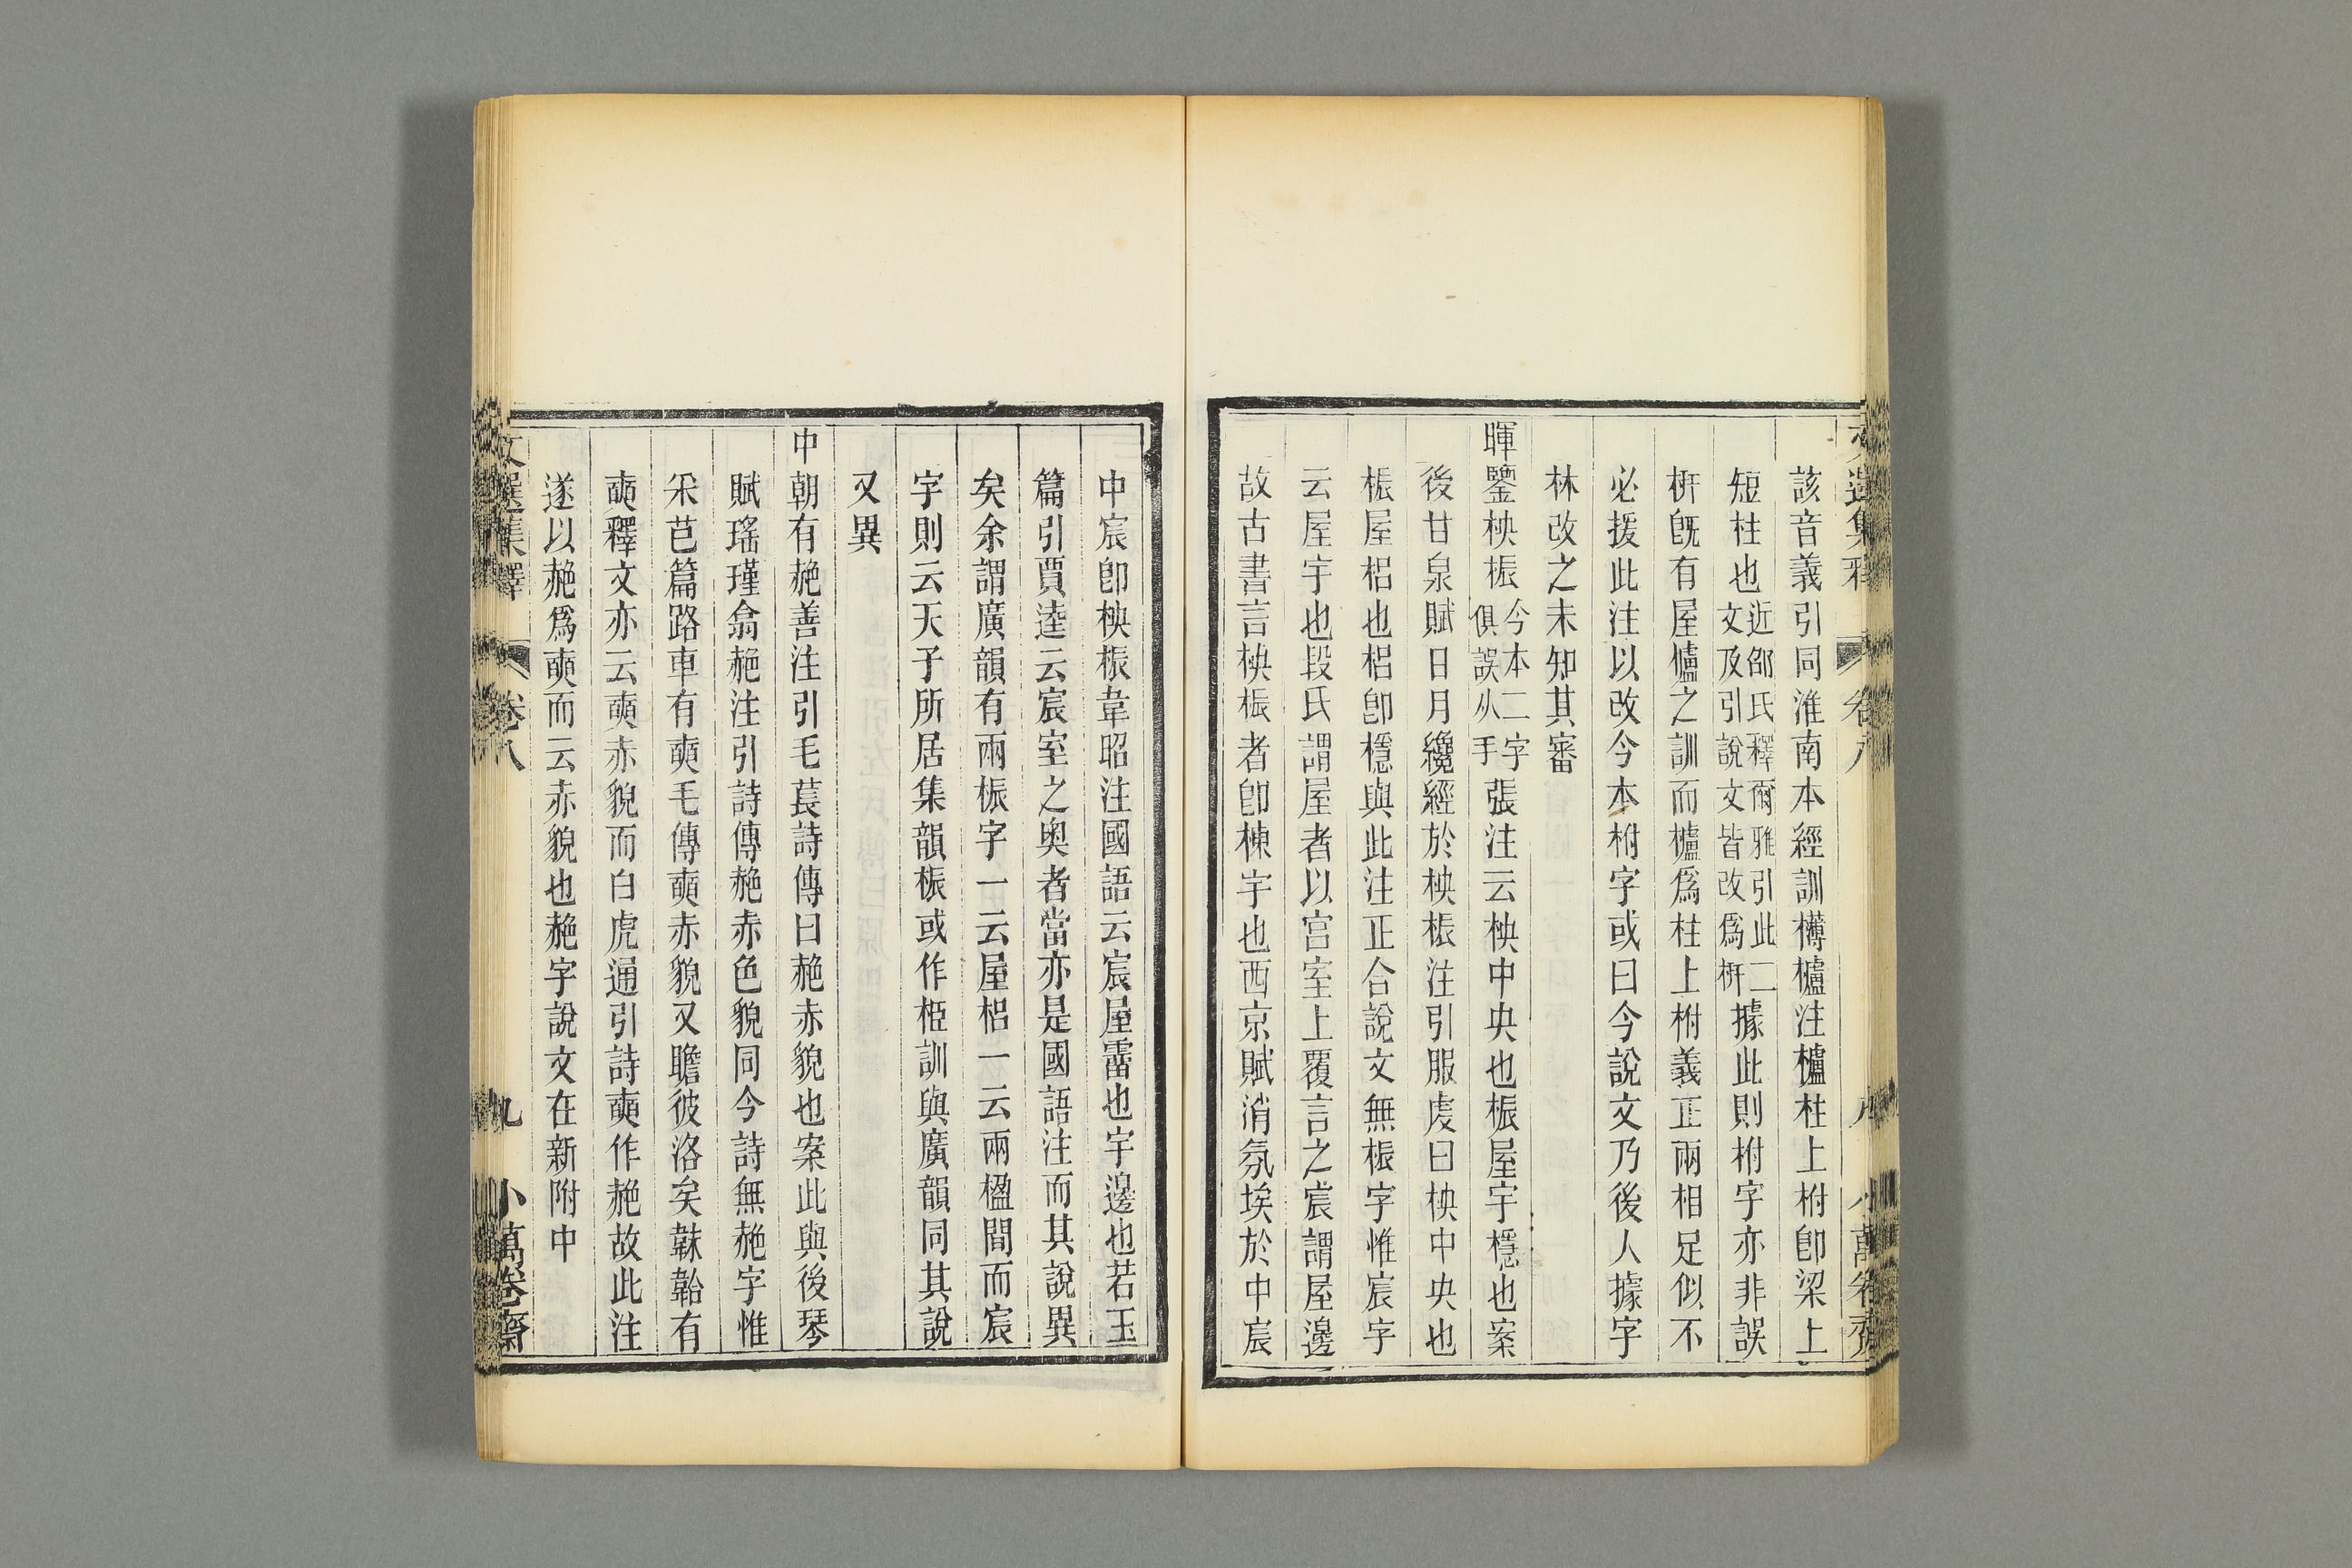 該音義引同淮南本經訓欂櫨注櫨柱上柎卽梁上
短柱也近邵氏釋爾雅引此二文及引說文皆改爲枅據此則柎字亦非誤
枅旣有屋櫨之訓而櫨爲柱上柎義正兩相足似不
必援此注以改今本柎字或曰今說文乃後人據字
林改之未知其審
暉鑒柍桭今本二字俱誤从手張注云柍中央也桭屋宇穩也案
後甘泉賦日月纔經於柍桭注引服虔曰柍中央也
桭屋梠也梠卽穩與此注正合說文無桭字惟宸字
云屋宇也段氏謂屋者以宫室上覆言之宸謂屋邊
故古書言柍桭者卽棟宇也西京賦消氛埃於中宸
中宸卽柍桭韋昭注國語云宸屋霤也宇邊也若玉
篇引賈逵云宸室之奧者當亦是國語注而其說異
矣余謂廣韻有兩桭字一云屋梠一云兩楹間而宸
字則云天子所居集韻桭或作栕訓與廣韻同其說
又異
中朝有赩善注引毛萇詩傳曰赩赤貌也案此與後琴
賦瑤瑾翕赩注引詩傳赩赤色貌同今詩無赩字惟
采芑篇路車有奭毛傳奭赤貌又瞻彼洛矣韎韐有
奭釋文亦云奭赤貌而白虎通引詩奭作赩故此注
遂以赩爲奭而云赤貌也赩字說文在新附中
文選集釋 卷八 九 小萬卷齋